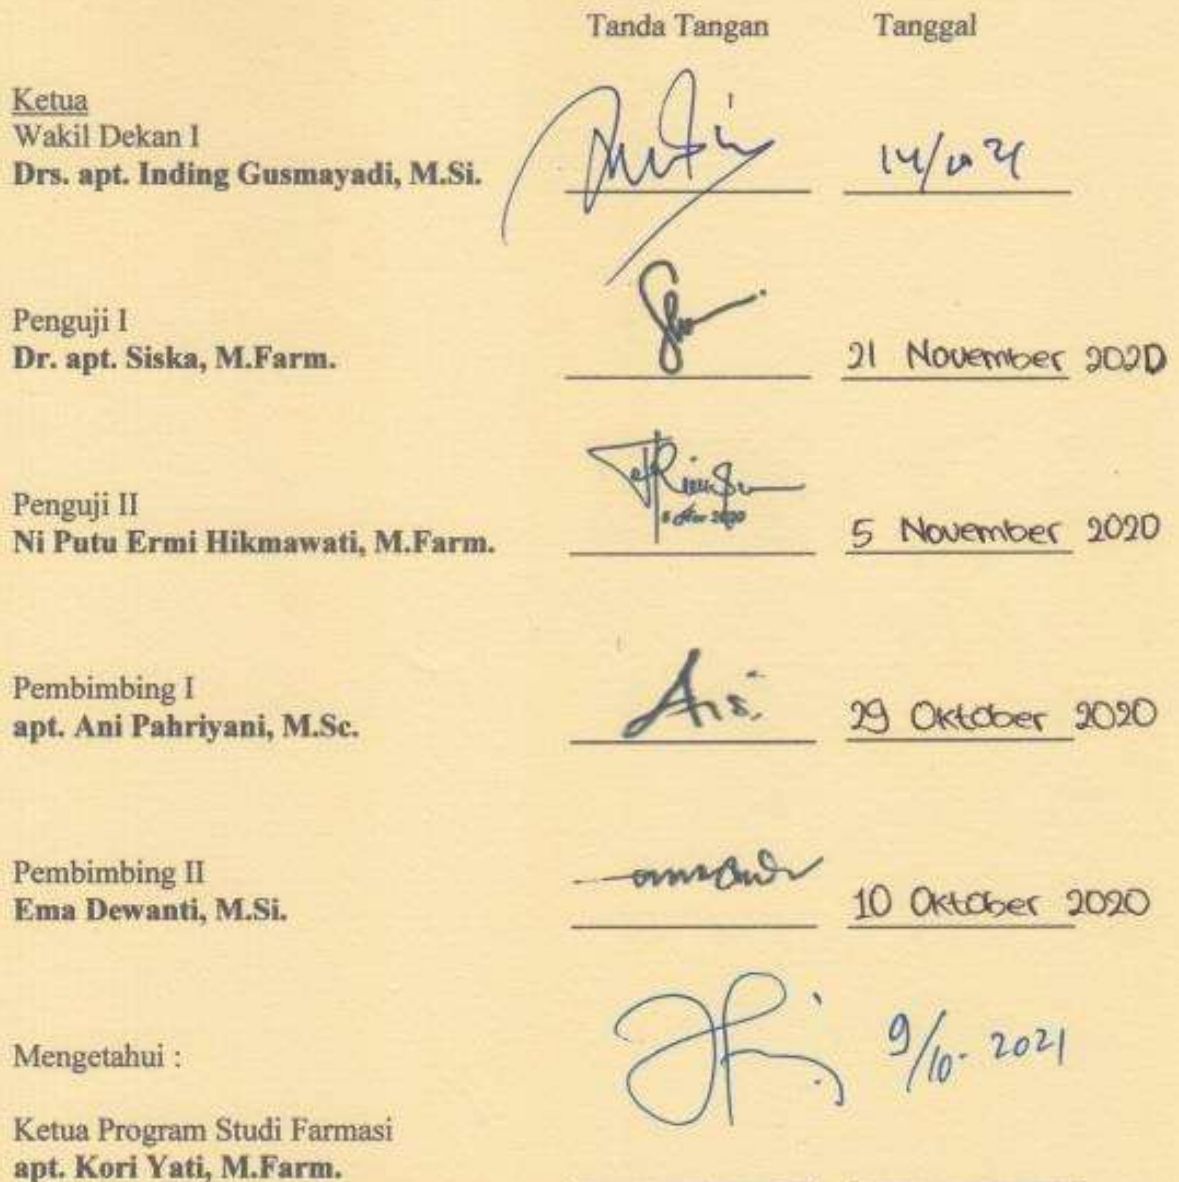 Tanda Tangan Tanggal
Ketua
Wakil Dekan I
Drs. apt. Inding Gusmayadi, M.Si.
Penguji I
Dr. apt. Siska, M.Farm. 21 November 2020
Penguji II
Ni Putu Ermi Hikmawati, M.Farm. 5 November 2020
Pembimbing I
apt. Ani Pahriyani, M.Sc. 29 Oktober 2020
Pembimbing II
Ema Dewanti, M.Si. 10 Oktober 2020
9/10. 2021
Mengetahui :
Ketua Program Studi Farmasi
apt. Kori Yati, M.Farm.